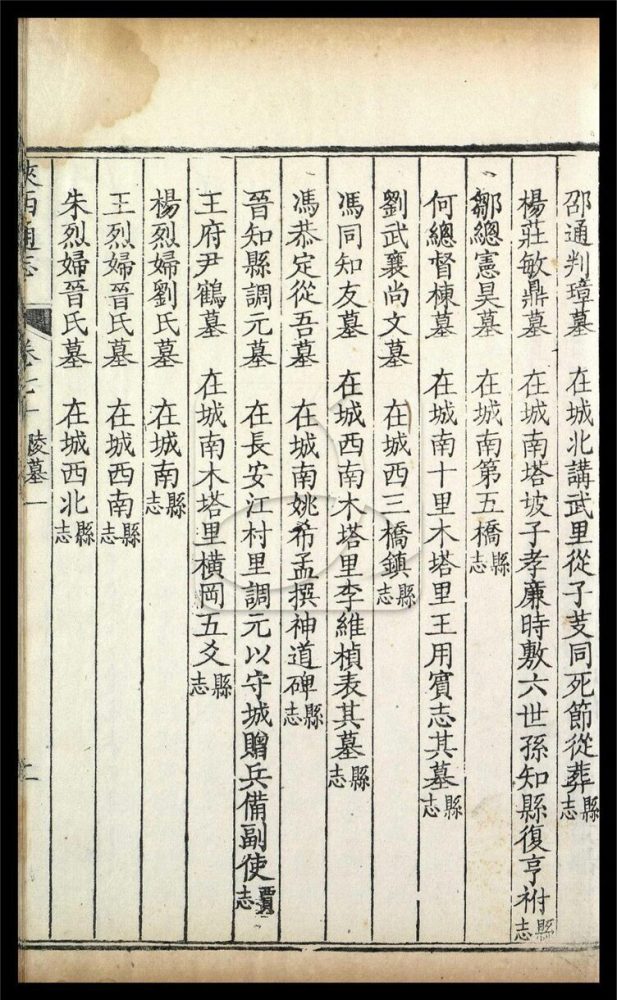 邵通判璋墓　在城北講武里從子芰同死節從葬縣志
楊莊敏鼎墓　在城南塔坡子孝廉時敷六世孫知縣復亨祔縣志
鄒總憲昊墓　在城南第五橋縣志
何總督棟墓　在城南十里木塔里王用賓志其墓縣志
劉武襄尚文墓　在城西三橋鎮縣志
馮同知友墓　在城西南木塔里李維楨表其墓縣志
馮恭定從吾墓　在城南姚希孟撰神道碑縣志
晉知縣調元墓　在長安江村里調元以守城贈兵備副使賈志
王府尹鶴墓　在城南木塔里橫岡五爻縣志
楊烈婦劉氏墓　在城南縣志
王烈婦晉氏墓　在城西南縣志
朱烈婦晉氏墓　在城西北縣志
陝西通志　卷七十　陵墓一